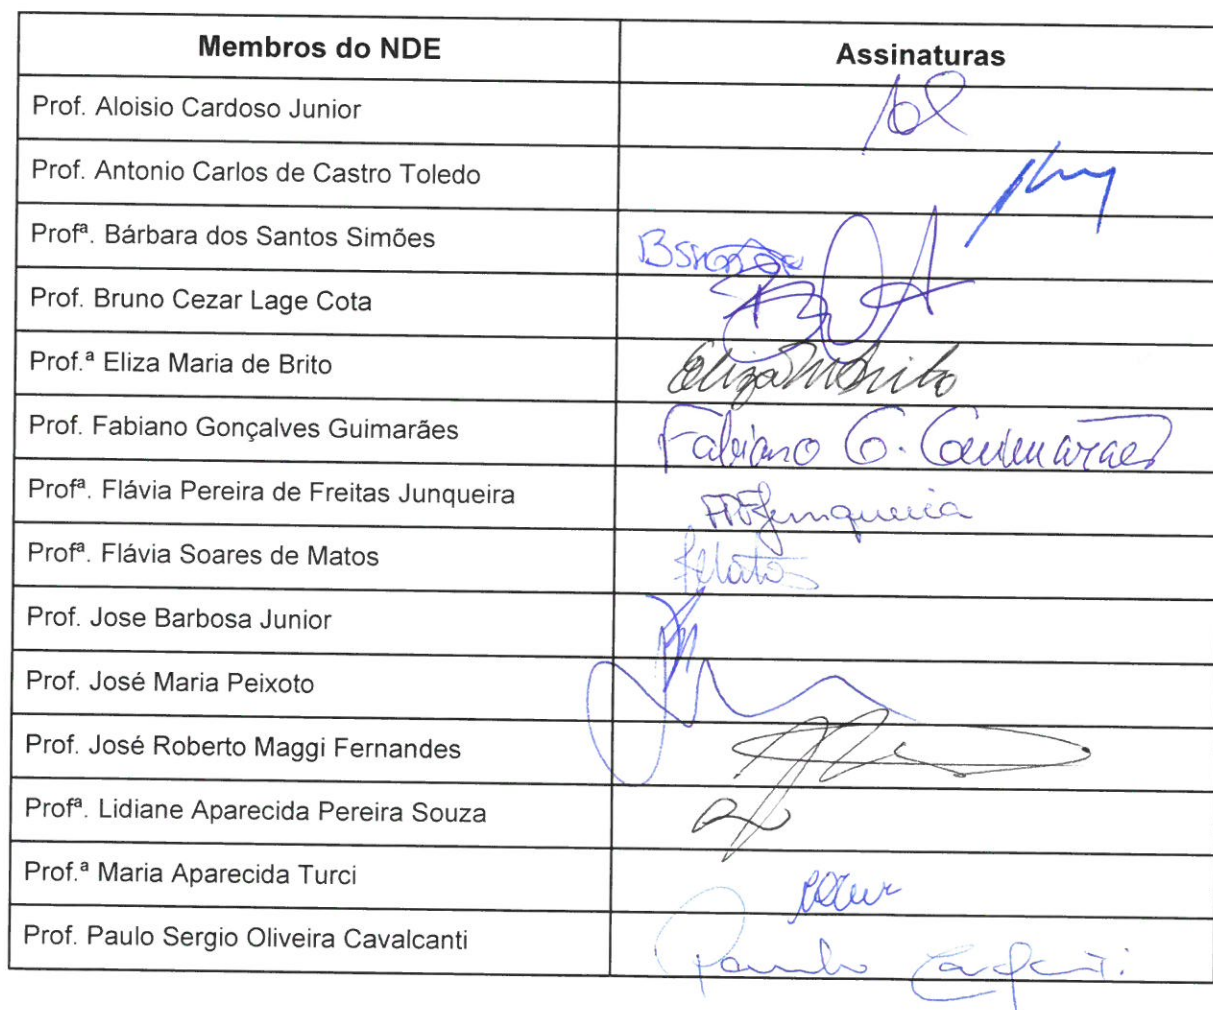 Membros do NDE Assinaturas
Prof. Aloisio Cardoso Junior
Prof. Antonio Carlos de Castro Toledo
Profª. Bárbara dos Santos Simões
Prof. Bruno Cezar Lage Cota
Prof.ª Eliza Maria de Brito
Prof. Fabiano Gonçalves Guimarães Fabiano G. Guimarães
Profª. Flávia Pereira de Freitas Junqueira FPFJunqueira
Profª. Flávia Soares de Matos
Prof. Jose Barbosa Junior
Prof. José Maria Peixoto
Prof. José Roberto Maggi Fernandes
Profª. Lidiane Aparecida Pereira Souza
Prof.ª Maria Aparecida Turci
Prof. Paulo Sergio Oliveira Cavalcanti